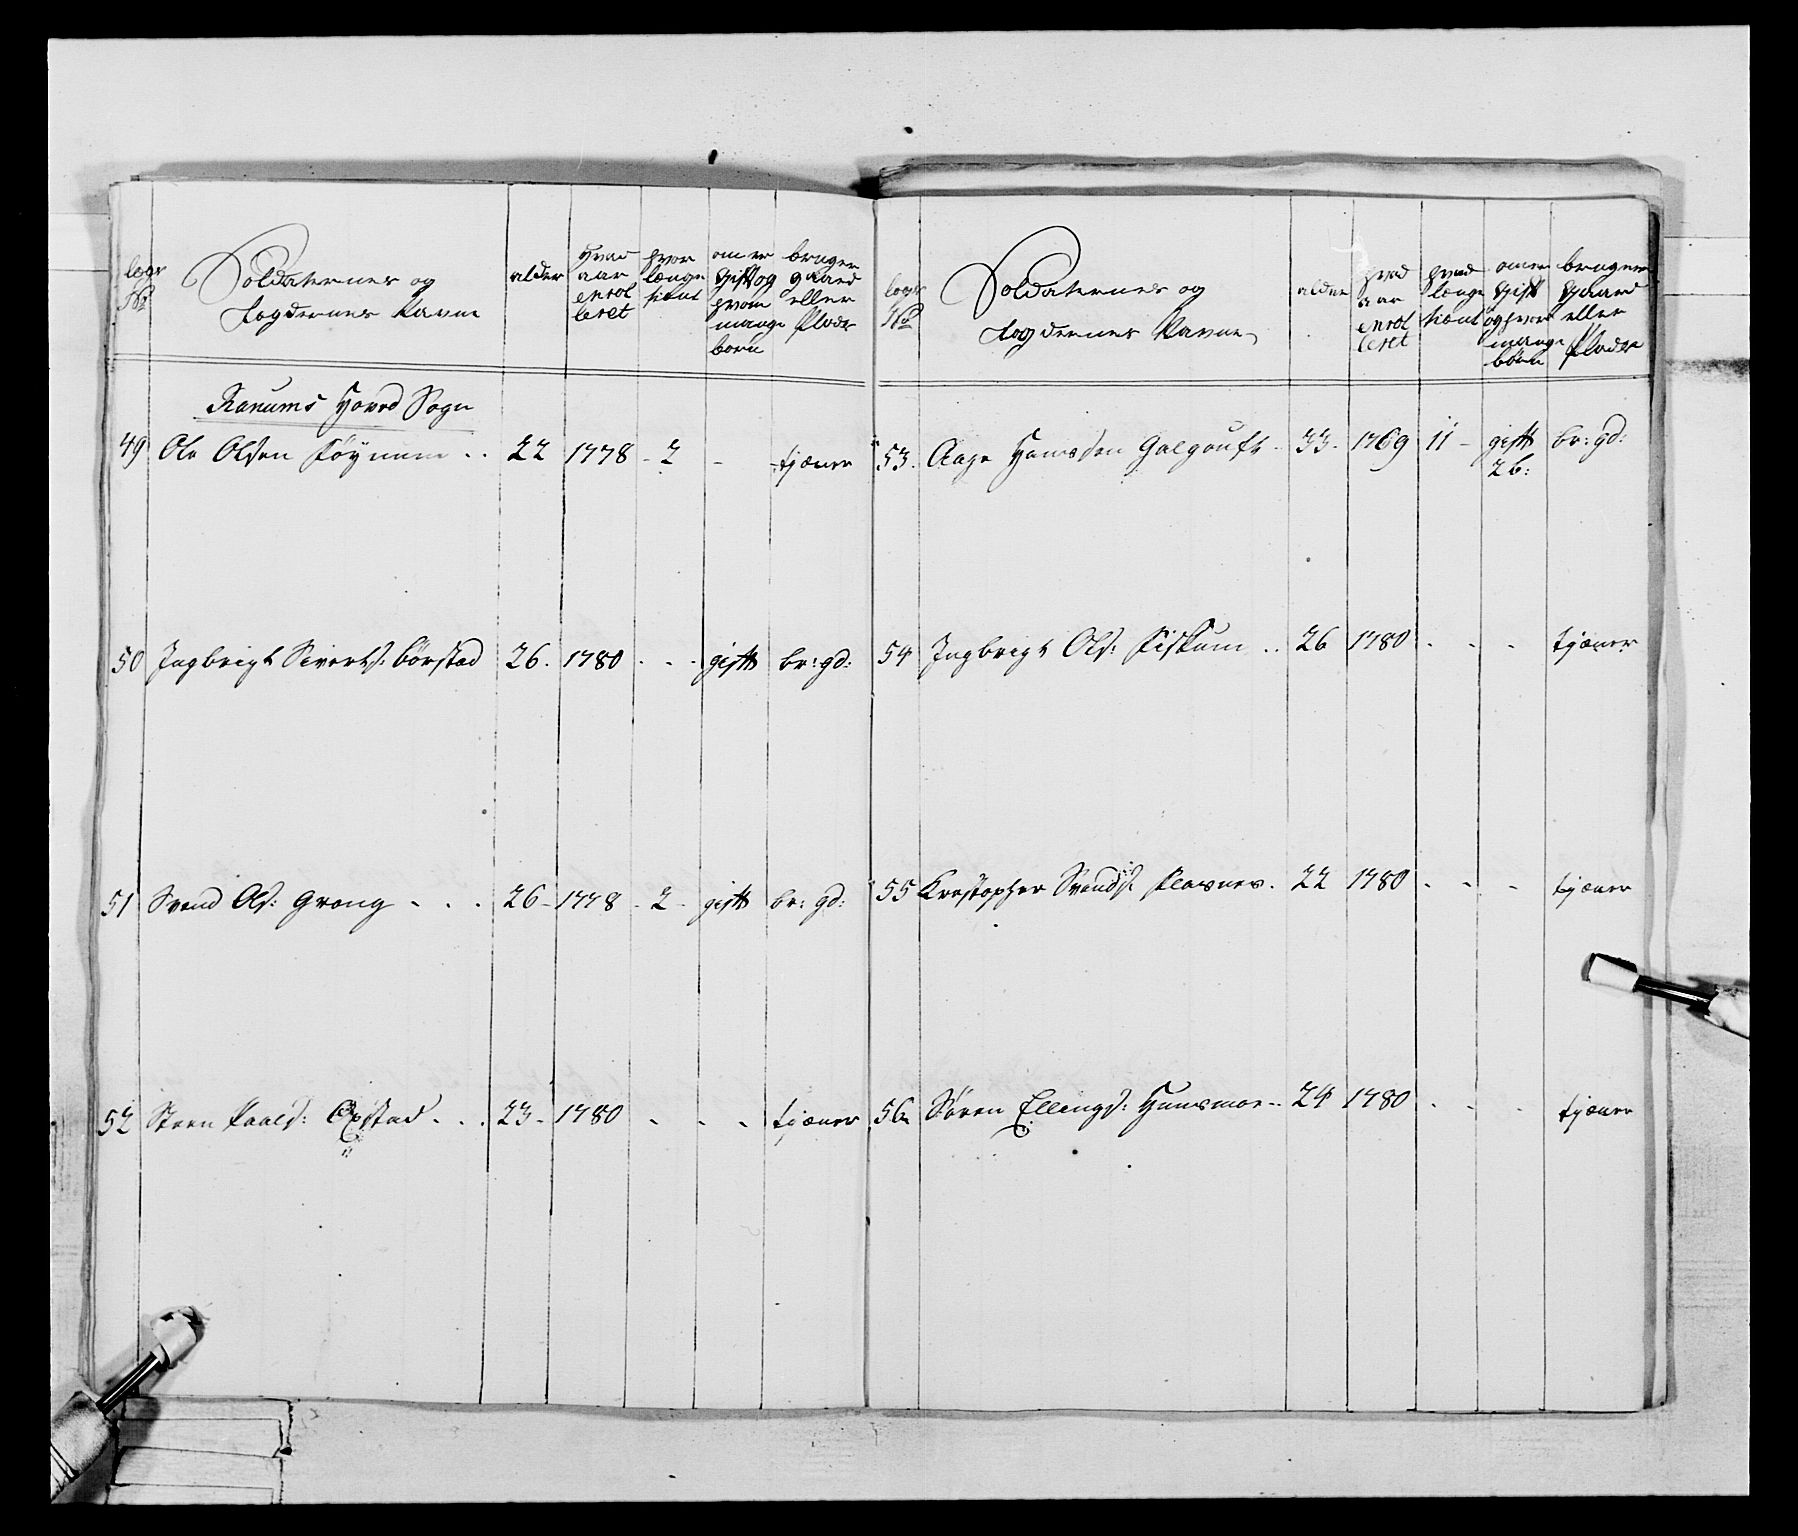 lægs No
Soldaternes og
Lægdernes Navne
alder
hvad aar enrol leret
hvor længe tient
om er gift og hvor mange børn
bruger gaard eller Plads
Ranums Hoved Sogn
49 Ole Olsen Føynum . . 22 1778 - 2 - tjæner
50 Ingbrigt Siverts: børstad 26. 1780 . . . gift br: gd:
51 Svend Ols: Grong . . . 26 - 1778 - 2 - gift br: gd:
52 Steen Paals: . . . 23 - 1780 . . . tjæner
lægs No
Soldaternes og
Lægdernes Navne
alder
hvad aar enrol leret
hvad længe tient
om er gift og hvor mange børn
bruger gaard eller Plads
53. Aage Hansen Galgouft - 33 - 1769 11 - gift 2 b: br: gd:
54 Ingbrigt Ols: Fiskum . . 26 1780 . . . tjæner
55 Krestopher Svends: . 22 1780 . . . tjæner
56 Søren Ellings: Hunsmoe - 24 1780 . . . tjæner